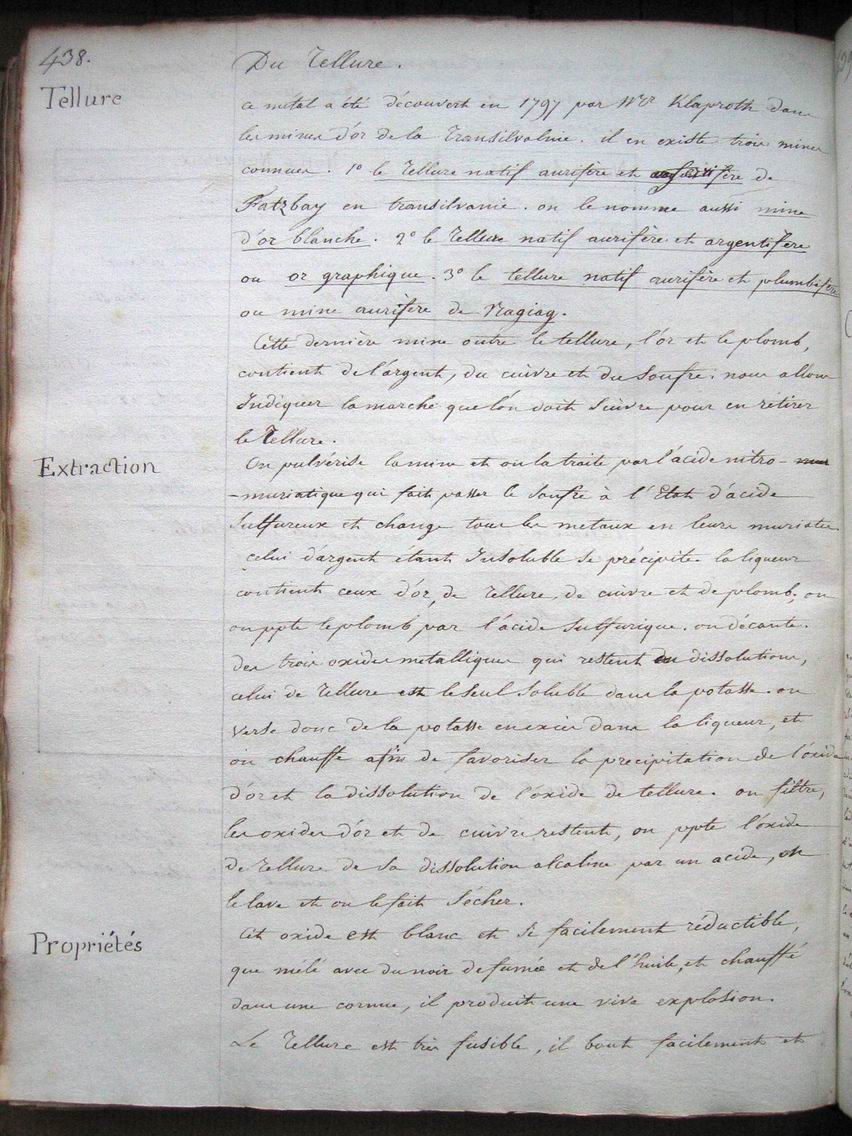 438.
Du Tellure.
Tellure
Ce métal a été découvert en 1797 par Mr Klaproth dans
les mines d'or de la Transilvalnie. il en existe trois mines
connues. 1° le Tellure natif aurifère et de
Fatzbay en transilvanie. on le nomme aussi mine
d'or blanche. 2° le Tellure natif aurifère et argentifère
ou or graphique. 3° le tellure natif aurifère et plumbifère
ou mine aurifère de Nagiag.
Cette dernière mine outre le tellure, l'or et le plomb,
contient de l'argent, du cuivre et du Soufre; nous allons
Indiquer la marche que l'on doit Suivre pour en retirer
le Tellure.
Extraction
On pulvérise la mine et on la traite par l'acide nitro-
-muriatique qui fait passer le Soufre à l'Etat d'acide
Sulfureux et change tous les metaux en leurs muriates
celui d'argent etant Insoluble se précipite. la liqueur
contient ceux d'or, de Tellure, de cuivre et de plomb; on
on ppte le plomb par l'acide Sulfurique. on décante.
des trois oxides metalliques qui restent en dissolutions,
celui de Tellure est le seul Soluble dans la potasse. on
verse donc de la potasse en excès dans la liqueur, et
on chauffe afin de favoriser la precipitation de l'oxide
d'or et la dissolution de l'oxide de tellure. on filtre,
les oxides d'or et de cuivre restent, on ppte l'oxide
de Tellure de sa dissolution alcaline par un acide, on
le lave et on le fait Sécher.
Propriétés
Cet oxide est blanc et si facilement réductible,
que mêlé avec du noir de fumée et de l'huile, et chauffé
dans une cornue, il produit une vive explosion.
Le Tellure est très fusible, il bout facilement et